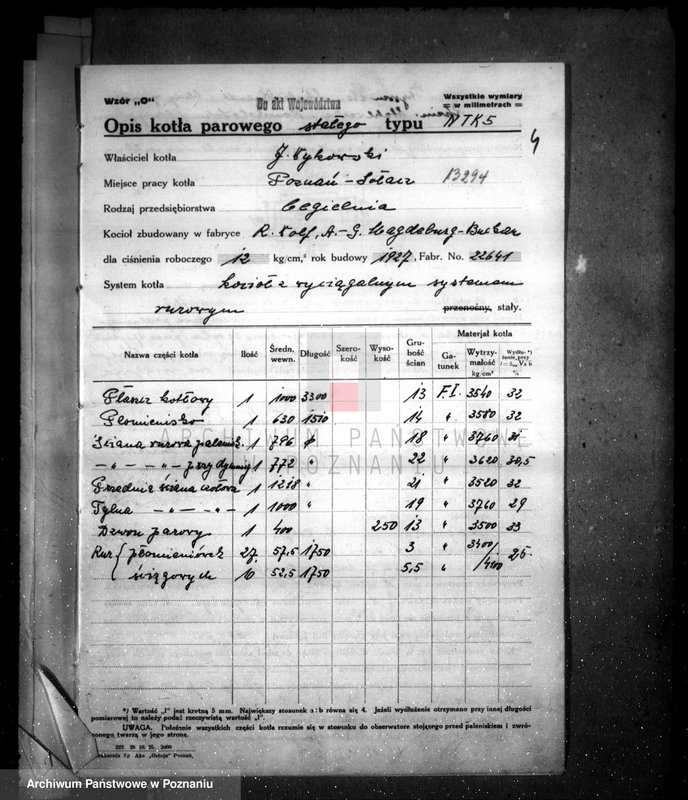 Wzór „O"
Do akt Województwa
Wszystkie wymiary
w milimetrach
Opis kotła parowego stałego typu NTK5
4
Właściciel kotła J. Nykowski
Miejsce pracy kotła Poznań - Sołacz 13294
Rodzaj przedsiębiorstwa Cegielnia
Kocioł zbudowany w fabryce R. Wolf, A.-G. Magdeburg-Buckau
dla ciśnienia roboczego 12 kg/cm,² rok budowy 1927. Fabr. No. 22641
System kotła kocioł z wyciągalnym systemem
rurowym przenośny, stały.
Nazwa części kotła Ilość Średn. wewn. Długość Szerokość Wysokość Grubość ścian Materjał kotła
Gatunek Wytrzymałość kg/cm²
Płaszcz kotłowy 1 1000 3300 13 F.I. 3540 32
Płomienisko 1 630 1510 14 " 3580 32
Ściana rurowa palenisk. 1 796 18 " 3760 31
-"- -"- przy dymnicy 1 772 " 22 " 3620 30,5
Przednia ściana kotłowa 1 1218 " 21 " 3520 32
Tylna -"- -"- 1 1000 " 19 " 3760 29
Dzwon parowy 1 400 250 13 " 3500 33
Rur { płomieniówek 27 57,5 1750 3 " 3400/ 25
ściągowych 10 52,5 1750 5,5 " /4100
ARCHIWUM PAŃSTWOWE
W POZNANIU
*) Wartość „l" jest krotną 5 mm. Największy stosunek a : b równa się 4. Jeżeli wydłużenie otrzymano przy innej długości
pomiarowej to należy podać rzeczywistą wartość „l".
UWAGA. Położenie wszystkich części kotła rozumie się w stosunku do obserwatora stojącego przed paleniskiem i zwró-
conego twarzą w jego stronę.
Drukarnia Tp Akc „Ostoja" Poznań,
Archiwum Państwowe w Poznaniu